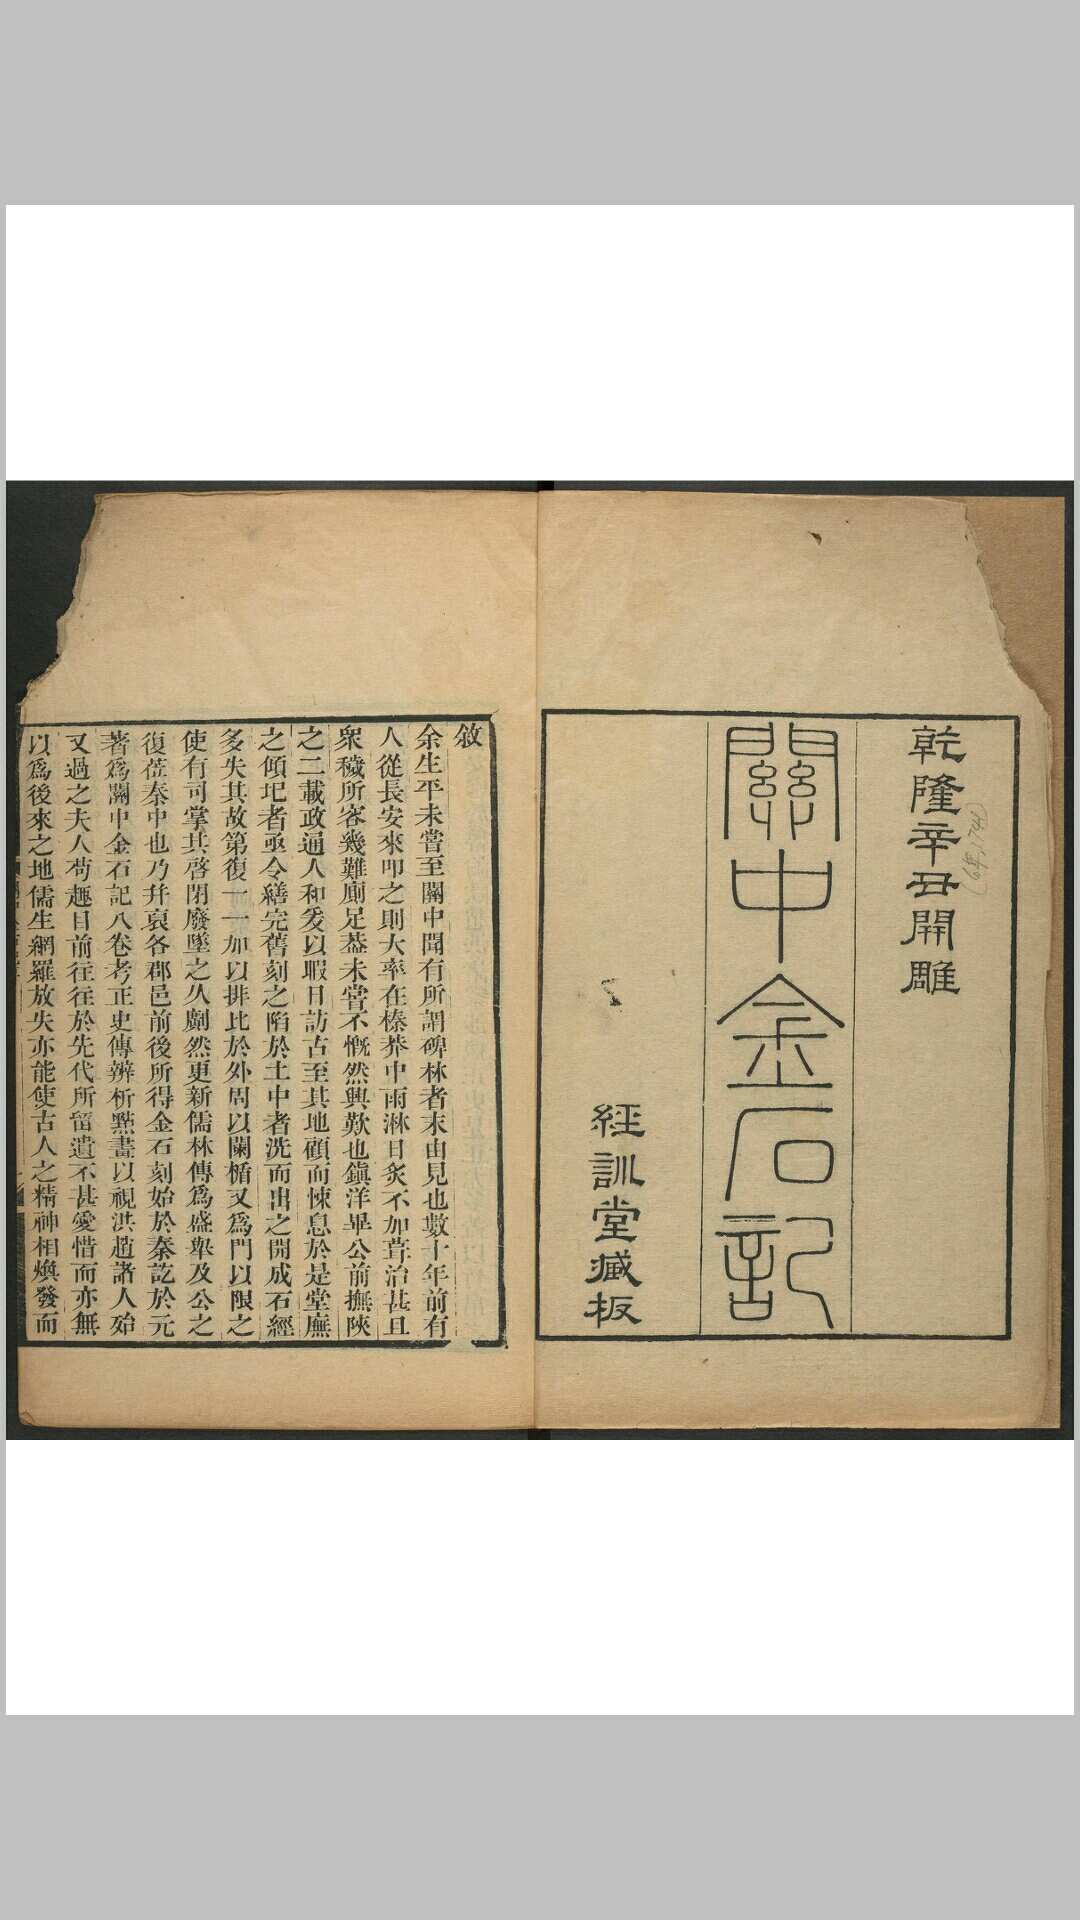 乾隆辛丑開雕
關中金石記
經訓堂藏板
敘
余生平未嘗至關中聞有所謂碑林者末由見也數十年前有
人從長安來叩之則大率在榛莽中雨淋日炙不加葺治甚且
衆穢所容幾難廁足葢未嘗不慨然興歎也鎮洋畢公前撫陝
之二載政通人和爰以暇日訪古至其地顧而悚息於是堂廡
之傾圮者亟令繕完舊刻之陷於土中者洗而出之開成石經
多失其故第復一一加以排比於外周以闌楯又爲門以限之
使有司掌其啓閉廢墜之久劃然更新儒林傳爲盛舉及公之
復莅秦中也乃幷裒各郡邑前後所得金石刻始於秦訖於元
著爲關中金石記八卷考正史傳辨析點畫以視洪趙諸人殆
又過之夫人苟趣目前往往於先代所留遺不甚愛惜而亦無
以爲後來之地儒生網羅放失亦能使古人之精神相煥發而